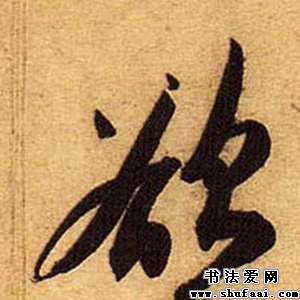 欲
书法爱网
www.shufaai.com